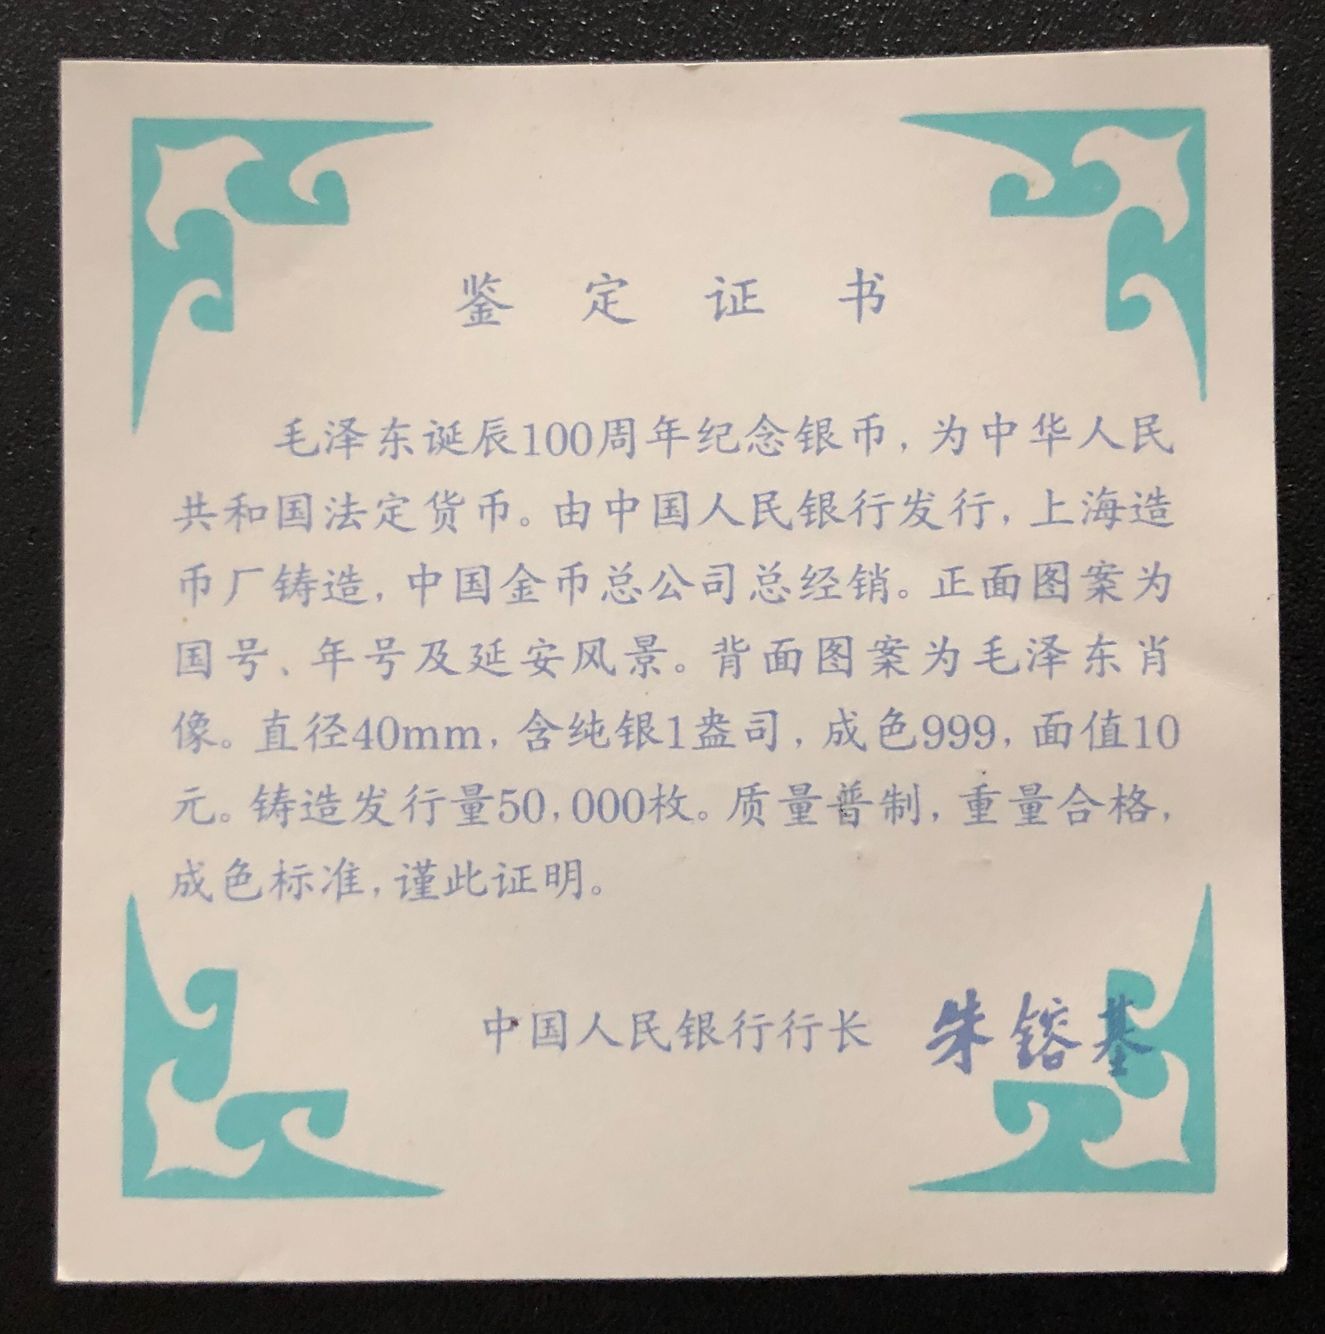 鉴定证书
毛泽东诞辰100周年纪念银币,为中华人民
共和国法定货币。由中国人民银行发行,上海造
币厂铸造,中国金币总公司总经销。正面图案为
国号、年号及延安风景。背面图案为毛泽东肖
像。直径40mm,含纯银1盎司,成色999,面值10
元。铸造发行量50,000枚。质量普制,重量合格,
成色标准,谨此证明。
中国人民银行行长 朱镕基